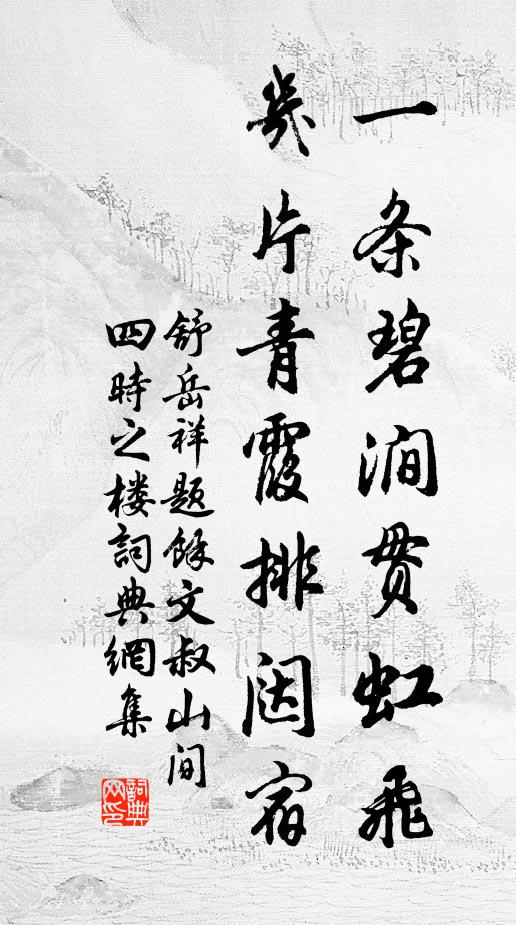 一条碧涧贯虹飛
幾片青霞排闼宿
舒岳祥题餘文叔山间
四時之楼詞典網集
詞典網印